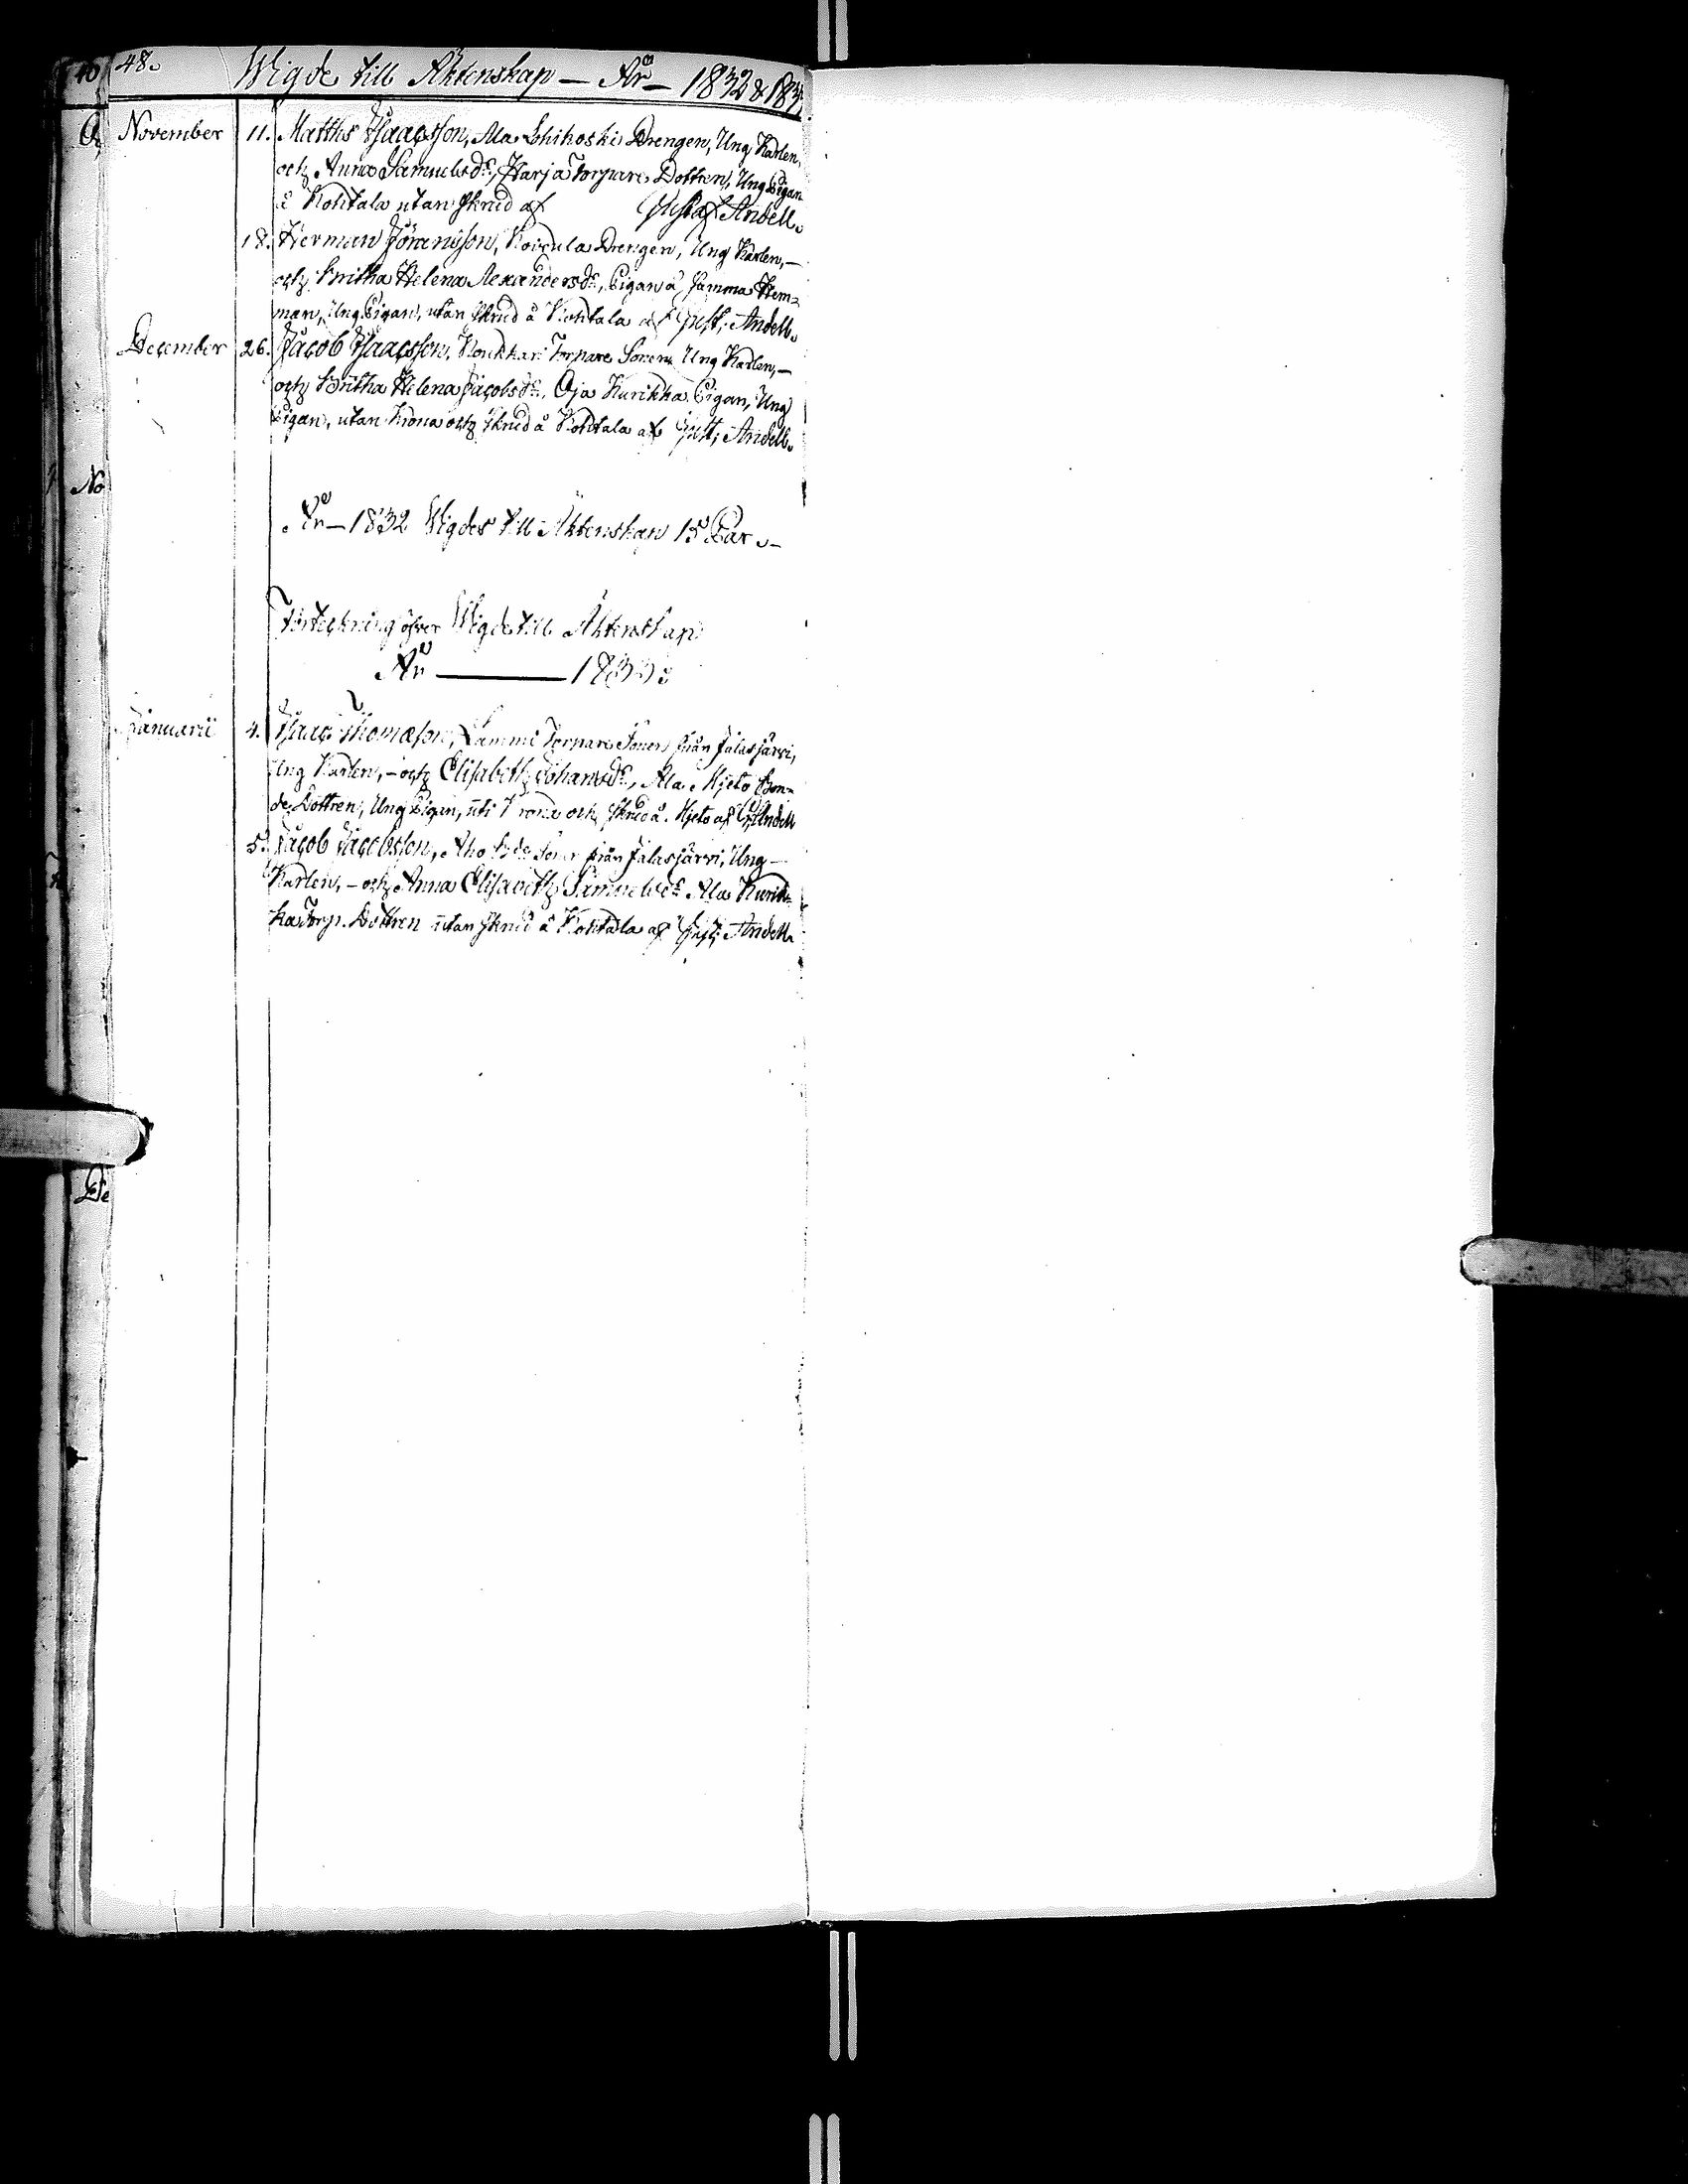 48.
Wigde till Äktenskap — År — 1832 & 183
November 11. Matths Isaacsson, Ala Lohikoski Drengen, Ung Karlen,
och Anna Samuelsdr, Harja Torpare Dottren, Ung Pigan
å Kohtala utan skrud af Gustaf Andell.
18. Herman Jöransson, Koivula Drengen, Ung Karlen, —
och Britha Helena Alexandersdr, Pigan å samma Hem=
man, Ung Pigan, utan skrud å Kohtala af Gust: Andell.
December 26. Jacob Isaacsson, Torpare Sonen Ung Karlen, —
och Britha Helena Jacobsdr, Oja Kurikka Pigan, Ung
Pigan, utan Krona och skrud å Kohtala af Gust: Andell.
År — 1832 Wigdes till Äktenskap 15 Par. —
Förteckning öfver Wigde till Äktenskap
År — 1833:
Januarii 4. Isaac Thomasson, Lammi Torpare Sonen från Jalasjärvi,
Ung Karlen, — och Elisabeth Johansdr, Ala Mjeto Bon=
de Dottren, Ung Pigan, uti Krona och skrud å Mjeto af G: Andell
5. Jacob Jacobsson, Aho Sonen från Jalasjärvi, Ung —
Karlen, — och Anna Elisabeth Samuelsdr Ala Kurik=
ka Torp. Dottren utan skrud å Kohtala af Gust: Andell.